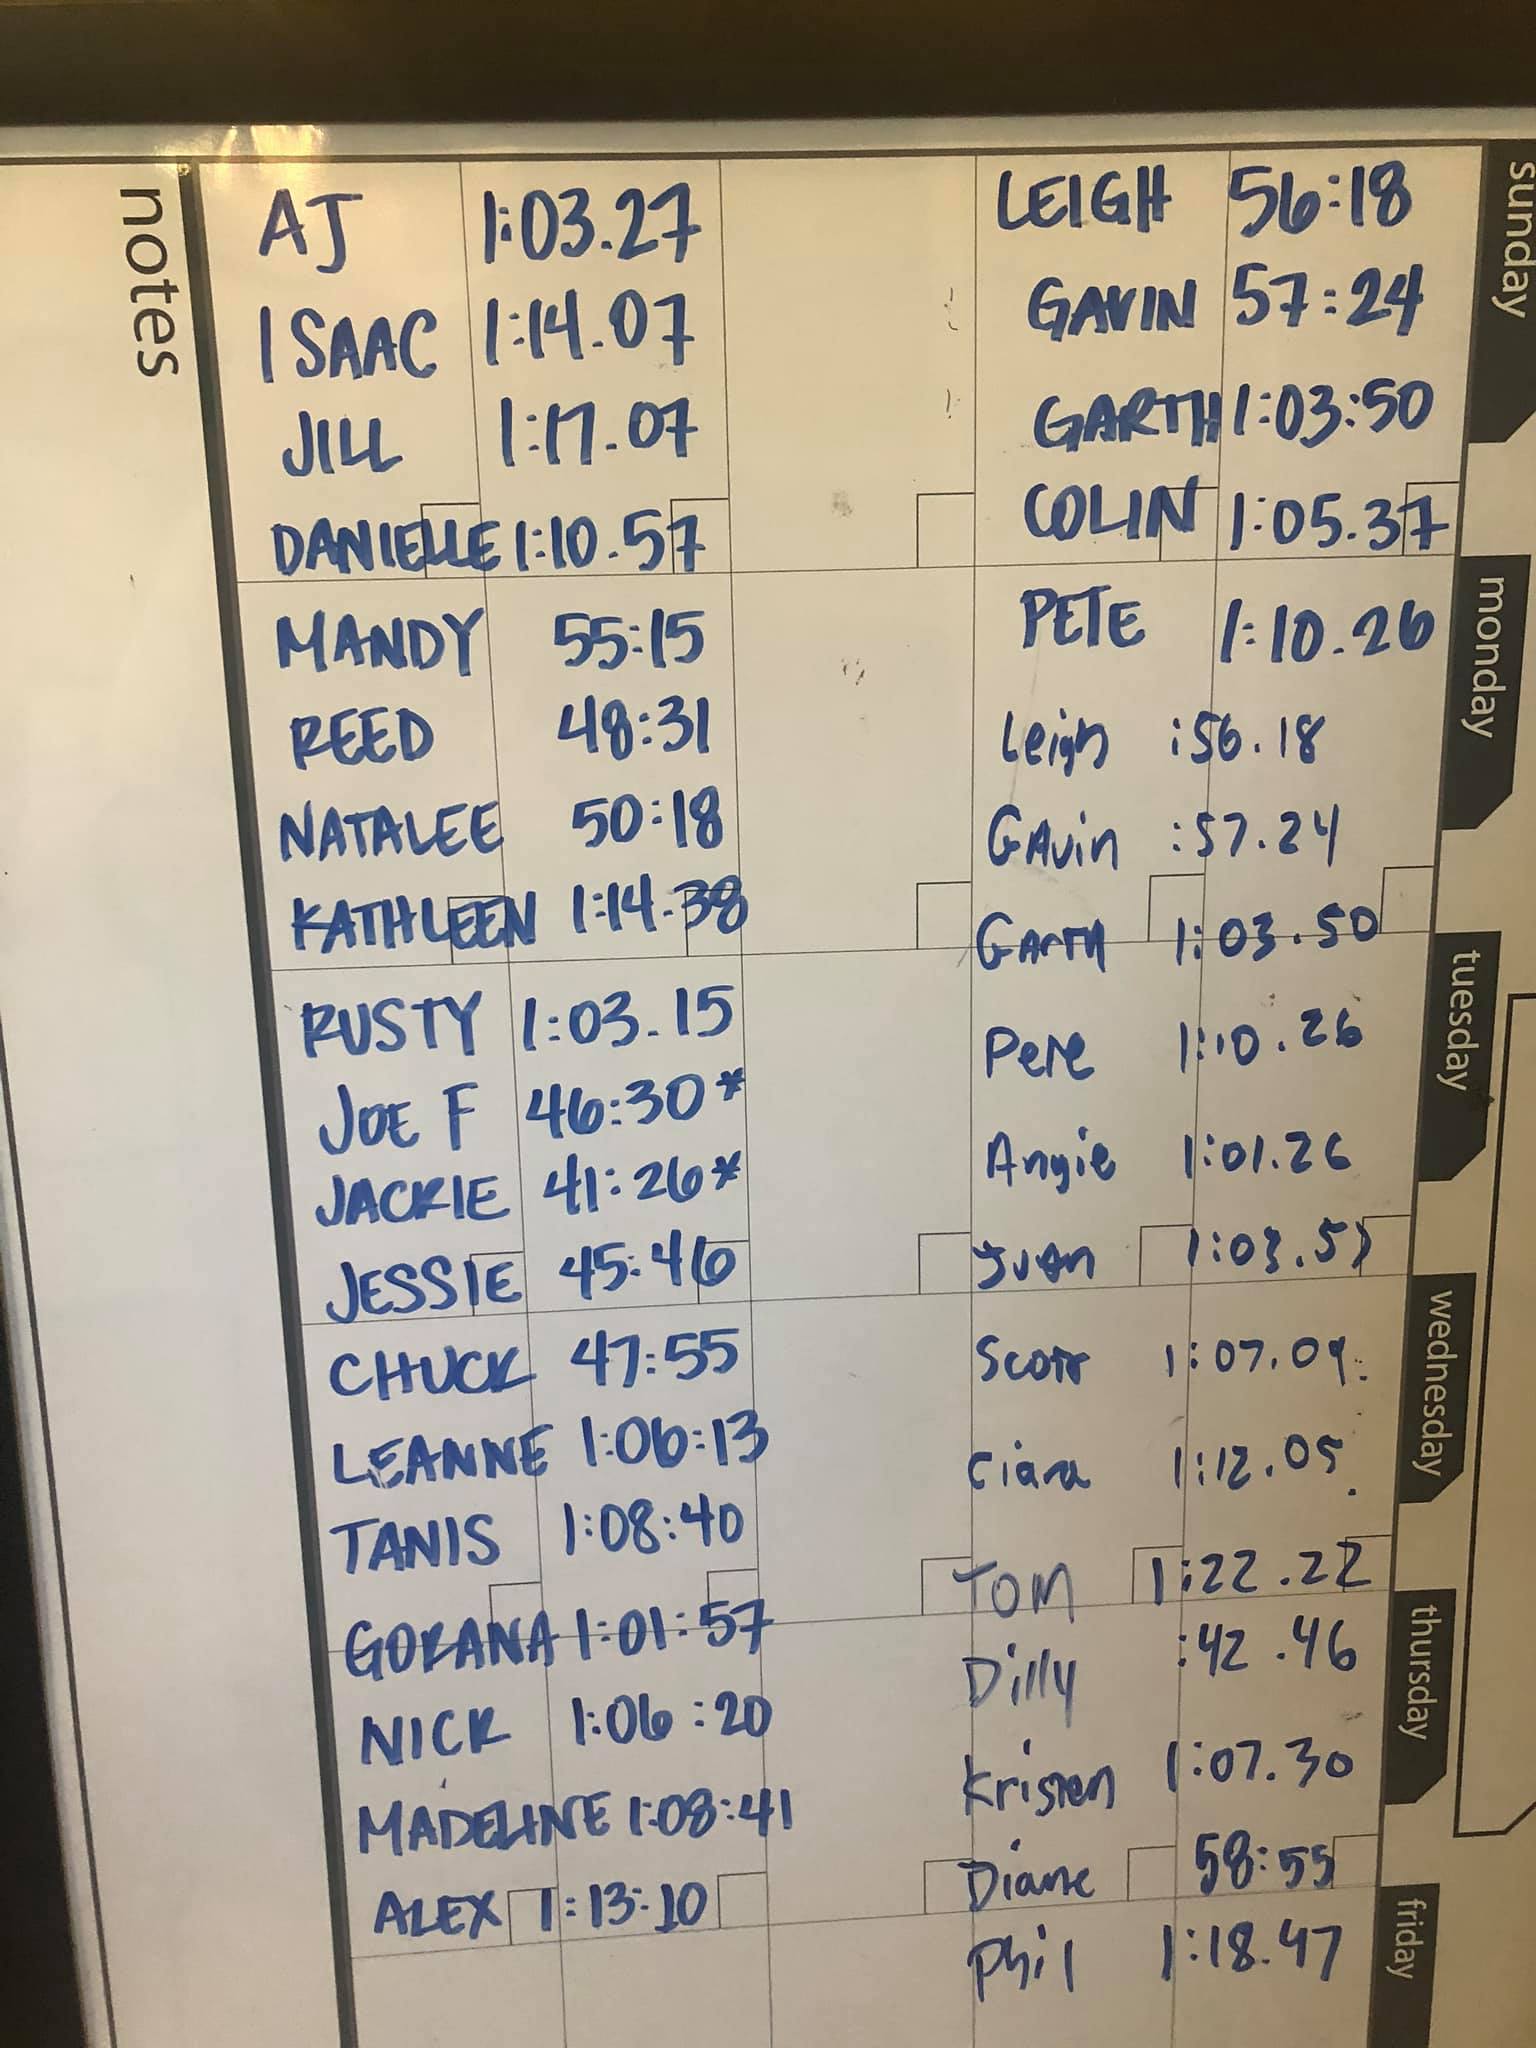 notes
AJ 1:03.27
ISAAC 1:14.07
JILL 1:17.07
DANIELLE 1:10.57
MANDY 55:15
REED 48:31
NATALEE 50:18
KATHLEEN 1:14.38
RUSTY 1:03.15
JOE F 46:30*
JACKIE 41:26*
JESSIE 45:46
CHUCK 47:55
LEANNE 1:06:13
TANIS 1:08:40
GORANA 1:01:57
NICK 1:06:20
MADELINE 1:08:41
ALEX 1:13:10
LEIGH 56:18
GAVIN 57:24
GARTH 1:03:50
COLIN 1:05.37
PETE 1:10.26
Leigh :56.18
GAvin :57.24
GArTH 1:03.50
Pete 1:10.26
Angie 1:01.26
JuAn
Scott 1:07.09
Ciara 1:12.05
TOM 1:22.22
Dilly :42.46
Kristen 1:07.30
Diane 58:55
Phil 1:18.47
sunday
monday
tuesday
wednesday
thursday
friday